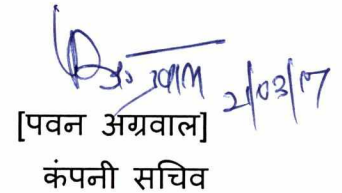 21/03/17
[पवन अग्रवाल]
कंपनी सचिव